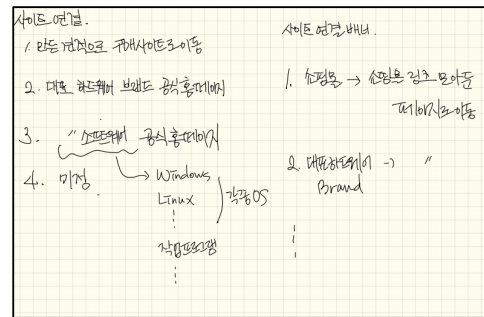 사이트 연결.
1. 만든 견적으로 구매사이트로 이동
2. 대표 하드웨어 브랜드 공식 홈페이지
3. 〃 소프트웨어 공식 홈페이지
4. 미정
Windows
Linux
⋮
각종 OS
작업프로그램
⋮
사이트 연결 배너.
1. 쇼핑몰 → 쇼핑몰 링크 모아둔
페이지로 이동
2. 대표하드웨어 → 〃
Brand
⋮